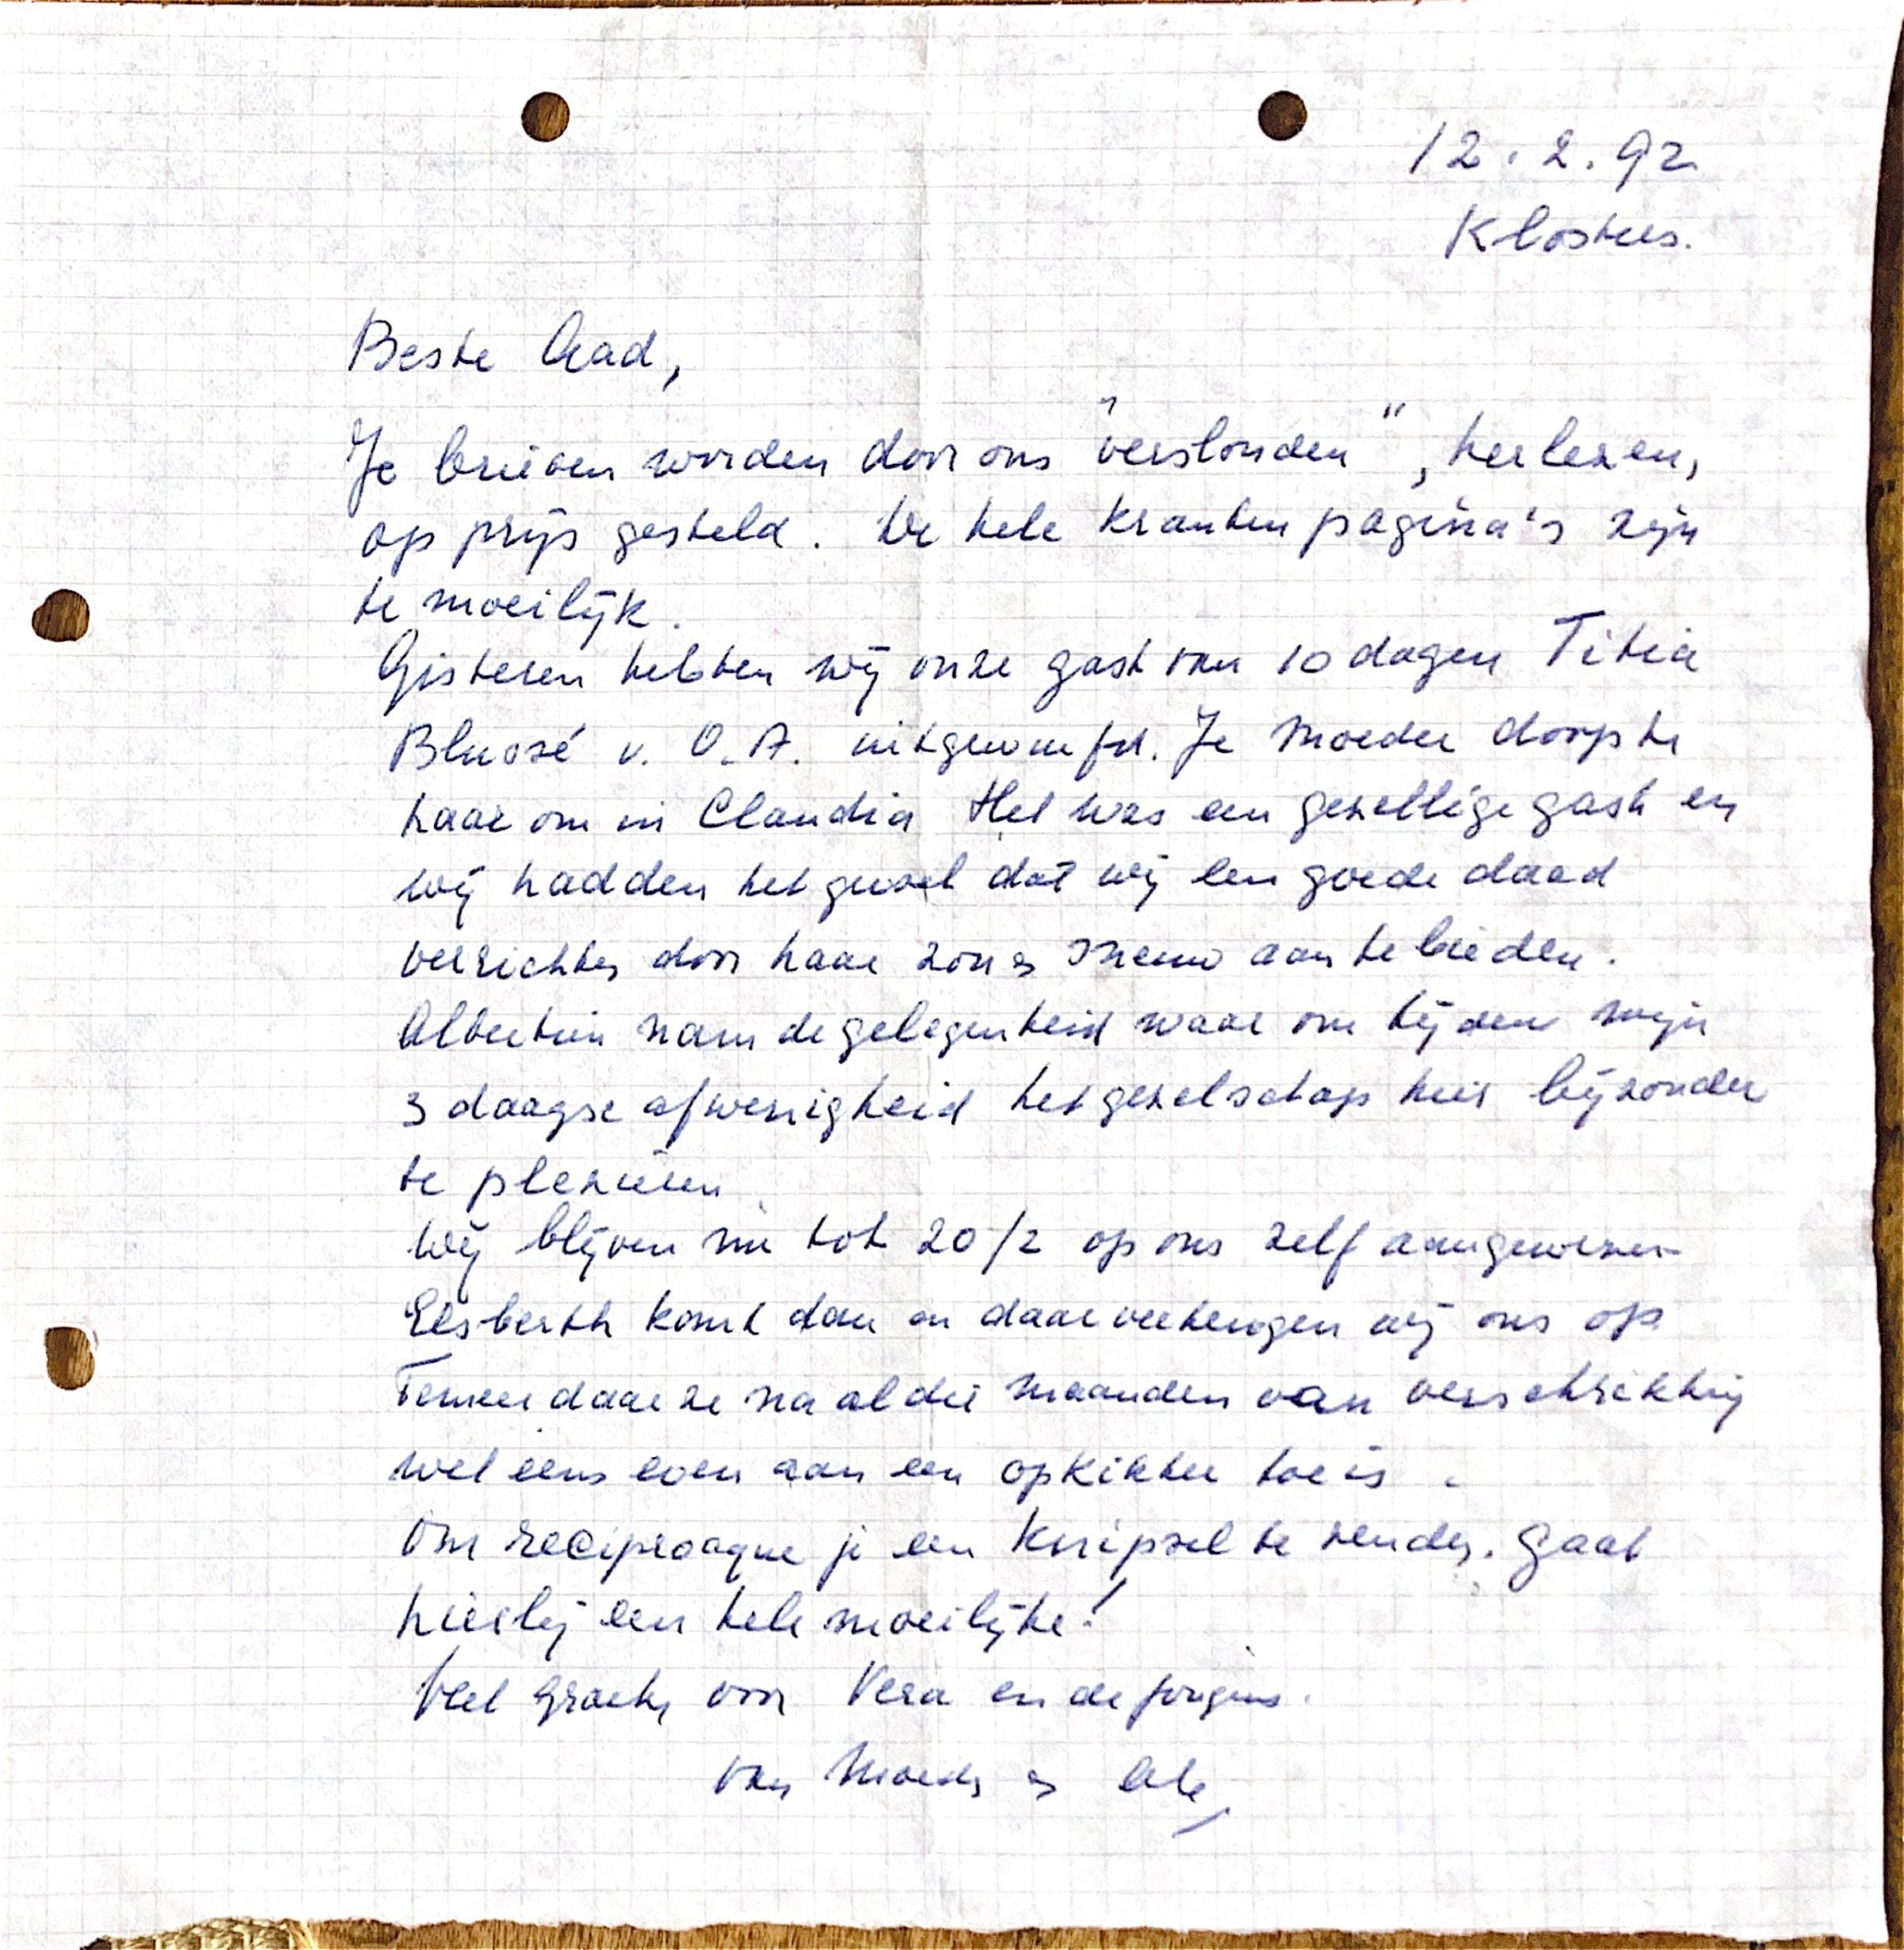 12.2.92
Klosters.
Beste Aad,
Je brieven worden door ons "verslonden", herlezen,
op prijs gesteld. De hele kranten pagina's zijn
te moeilijk.
Gisteren hebben wij onze gast van 10 dagen Titia
v. O. A. uitgewuifd. Je Moeder doopte
haar om in Claudia Het was een gezellige gast en
wij hadden het gevoel dat wij een goede daad
verrichten door haar zon en sneeuw aan te bieden.
Albertien nam de gelegenheid waar om tijdens mijn
3 daagse afwezigheid het gezelschap hier bijzonder
te plezieren.
Wij blijven nu tot 20/2 op ons zelf aangewezen
Elsberth komt dan en daar verheugen wij ons op
Temeer daar ze na al die maanden van verschrikking
wel eens even aan een opkikker toe is.
Om reciproque je een knipsel te zenden. Gaat
hierbij een hele moeilijke!
Veel groeten voor Vera en de jongens.
van Moeder en